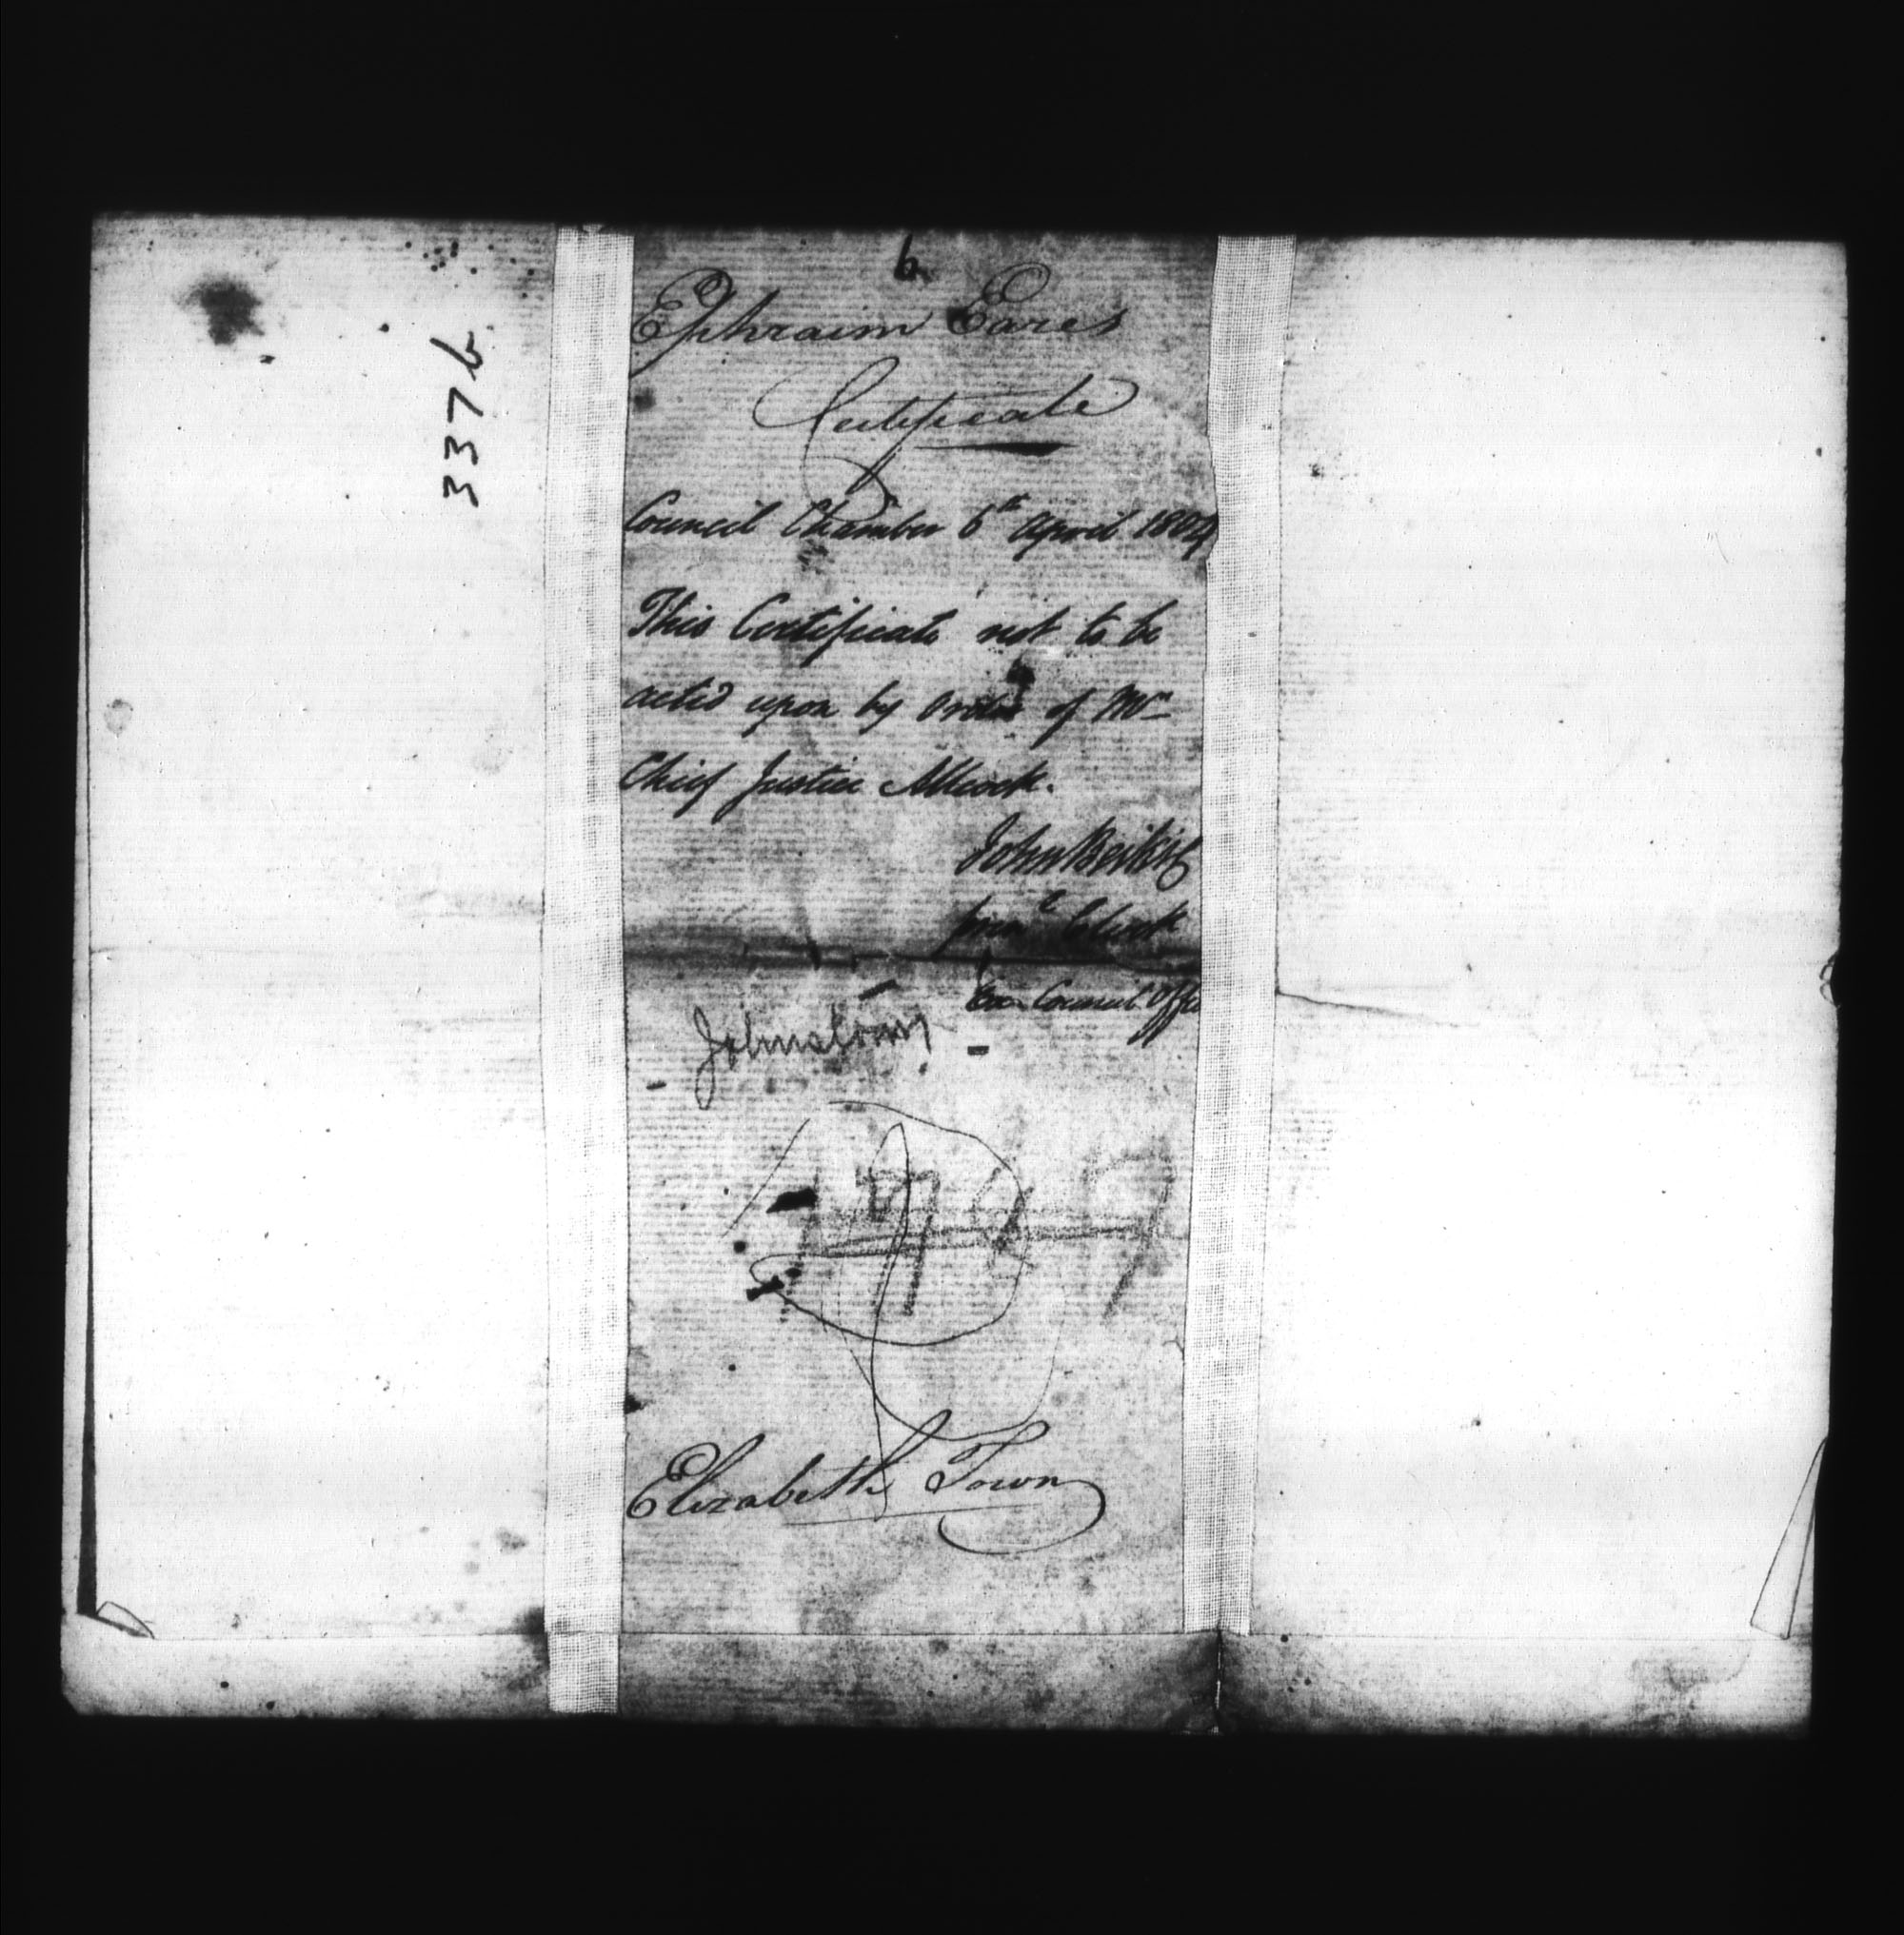 337b
6
Ephraim Eares
Certificate
Council Chamber 6th April 1804
This Certificate not to be
acted upon by order of Mr
Chief Justice Allcock.
John Beikie
Clerk
Exn Council Office
Johnstown
Elizabeth Town